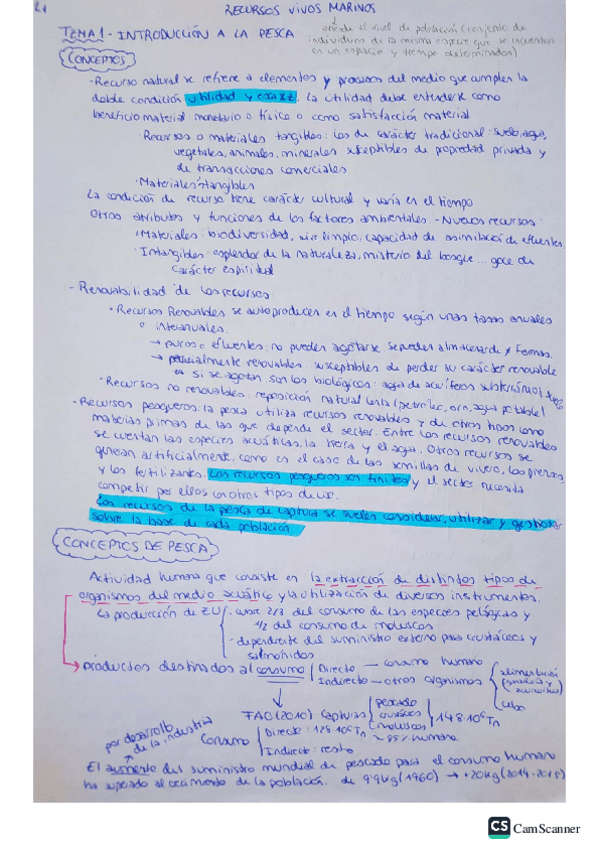 RECURSOS VIVOS MARINOS
TEMA 1 - INTRODUCCIÓN A LA PESCA
el nivel de población (conjunto de
individuos de la misma especie que se encuentran
en un espacio y tiempo determinados)
CONCEPTOS
· Recurso natural se refiere a elementos y procesos del medio que cumplen la
doble condición utilidad y La utilidad debe entenderse como
beneficio material monetario o físico o como satisfacción material
· Recursos o materiales tangibles: los de carácter tradicional: suelo, agua,
vegetales, animales, minerales susceptibles de propiedad privada y
de transacciones comerciales
· Materiales intangibles
La condición de recurso tiene carácter cultural y varía en el tiempo
Otros atributos y funciones de los factores ambientales - Nuevos recursos:
· Materiales: biodiversidad, aire limpio, capacidad de asimilación de efluentes
· Intangibles: esplendor de la naturaleza, misterio del bosque ... goce de
carácter espiritual
- Renovabilidad de los recursos
· Recursos Renovables se autoproducen en el tiempo según unas tasas anuales
o interanuales.
→ puros o efluentes: no pueden agotarse
→ potencialmente renovables: susceptibles de perder su carácter renovable
si se agotan son los biológicos: agua de acuíferos subterráneos, suelo
· Recursos no renovables: reposición natural lenta (petróleo, oro, agua potable)
- Recursos pesqueros: la pesca utiliza recursos renovables y de otros tipos como
materias primas de las que depende el sector. Entre los recursos renovables
se cuentan las especies acuáticas, la tierra y el agua. Otros recursos se
generan artificialmente, como es el caso de las semillas de vivero, los piensos
y los fertilizantes. Los recursos pesqueros son finitos y el sector necesita
competir por ellos con otros tipos de uso.
Los recursos de la pesca de captura se suelen considerar, utilizar y gestionar
sobre la base de cada población.
CONCEPTOS DE PESCA
Actividad humana que consiste en la extracción de distintos tipos de
organismos del medio acuático y la utilización de diversos instrumentos.
La producción de EU cubre 2/3 del consumo de las especies pelágicas y
1/2 del consumo de moluscos
- dependiente del suministro externo para crustáceos y
salmónidos
productos destinados al consumo Directo — consumo humano
Indirecto — otros organismos alimentación
cebo
FAO (2010) Capturas pescado
crustáceos
moluscos 148·10⁶ Tn
Consumo Directo: 128·10⁶ Tn ~ 85% humano
Indirecto: resto
por desarrollo
de la industria
El aumento del suministro mundial de pescado para el consumo humano
ha superado al crecimiento de la población. de 9'9kg (1960) → +20kg (2014-2015)
CS CamScanner